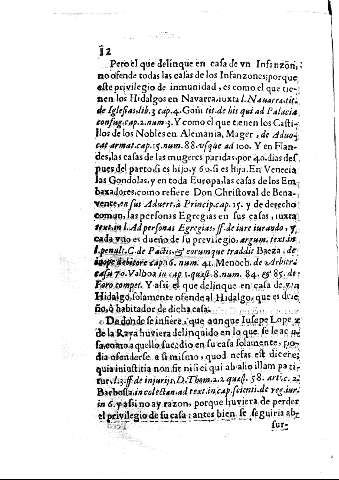 12
Pero el que delinque en casa de vn Infanzon,
no ofende todas las casas de los Infanzones; porque
este privilegio de inmunidad, es como el que tie-
nen los Hidalgos en Navarra, iuxta l. Navarra. tit.
de Iglesias, lib. 3 cap. 4. Goñi tit. de his qui ad Palacia
confug. cap. 2. num. 3. Y como el que tienen los Casti-
llos de los Nobles en Alemania, Mager, de Advo-
cat armat. cap. 15. num. 88. vsque ad 100. Y en Flan-
des, las casas de las mugeres paridas, por 40. dias des
pues del parto, si es hijo, y 60. si es hija. En Venecia
las Gondolas, y en toda Europa, las casas de los Em-
baxadores, como refiere Don Christoval de Bena-
vente, en sus Advert. à Princip. cap. 15. y de derecho
comun, las personas Egregias en sus casas, iuxta
text. in l. Ad personas Egregias, ff. de iure iurando, y
cada vno es dueño de su privilegio, argum. text. in
l. penult. C. de Pactis, & eorumque traddit Baeza, de
inope debitore cap. 16. num. 41. Menoch. de Arbitr.
casu 70. Valboa in cap. 1. quæst. 8. num. 84. & 85. de
Foro compet. Y assi, el que delinque en casa de vn
Hidalgo, solamente ofende al Hidalgo, que es due-
ño, ò habitador de dicha casa.
De donde se infiere, que aunque Iusepe Lope
de la Raya huviera delinquido en lo que se le acu
sa, como aquello sucedio en su casa solamente, po
dia ofenderse a si mismo, quod nefas est dicere,
quia iniustitia non fit nisi ei qui ab alio illam pati-
tur, l. 3. ff. de injurijs, D. Thom. 2. 2. quæst. 58. artic. 2.
Barbosa in colectan. ad text. in cap. scienti. de reg. iur.
in 6. y assi no ay razon, porque huviera de perder
el privilegio de su casa: antes bien se seguiria ab-
sur-